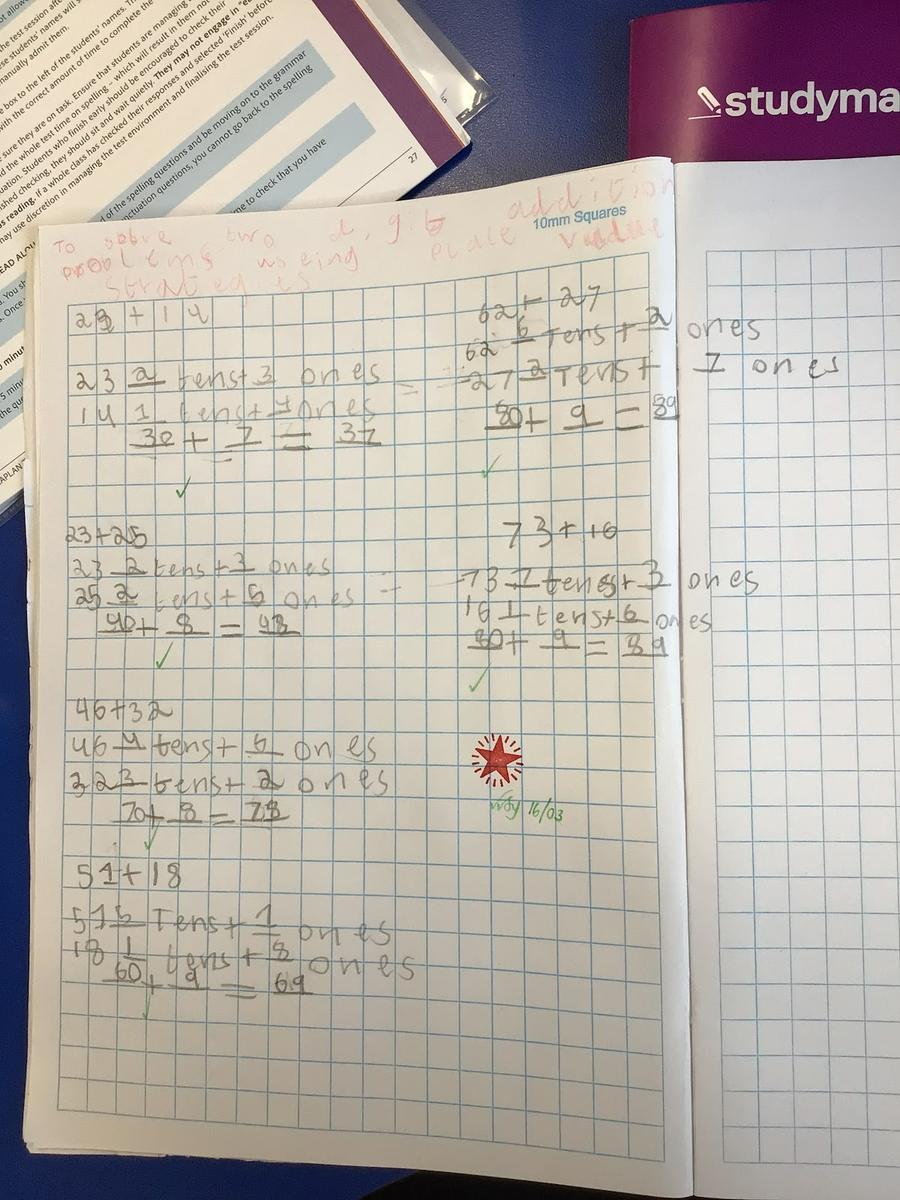 the test session aft
se students' names will s
manually admit them.
e box to the left of the students' names. Th
with the correct amount of time to complete the
sure they are on task. Ensure that students are managing
d the whole test time on spelling', which will result in them not
uation. Students who finish early should be encouraged to check their
shed checking, they should sit and wait quietly. They may not engage in "e
as reading. If a whole class has checked their responses and selected 'Finish' before
may use discretion in managing the test environment and finalising the test session.
27
d of the spelling questions and be moving on to the grammar
nctuation questions, you cannot go back to the spelling
me to check that you have
EAD ALOU
studyma
10mm Squares
To solve two digit addition
problems useing place value
strategies
23 + 14
23 2 tens + 3 ones
14 1 tens + 4 ones
30 + 7 = 37
23+25
23 2 tens + 3 ones
25 2 tens + 5 ones
40 + 8 = 48
46+32
46 4 tens + 6 ones
32 3 tens + 2 ones
70 + 8 = 78
51+18
51 5 Tens + 1 ones
18 1 tens + 8 ones
60 + 9 = 69
62 + 27
62 6 Tens + 2 ones
27 2 Tens + 7 ones
80 + 9 = 89
73+16
73 7 tenes + 3 ones
16 1 tens + 6 ones
80 + 9 = 89
16/03